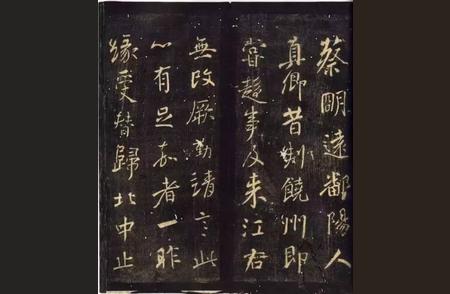 蔡明遠鄱陽人
真卿昔刾饒州即
嘗趨事及来江右
無改厥勤靖言此
心有足嘉者一昨
緣受替歸北中止